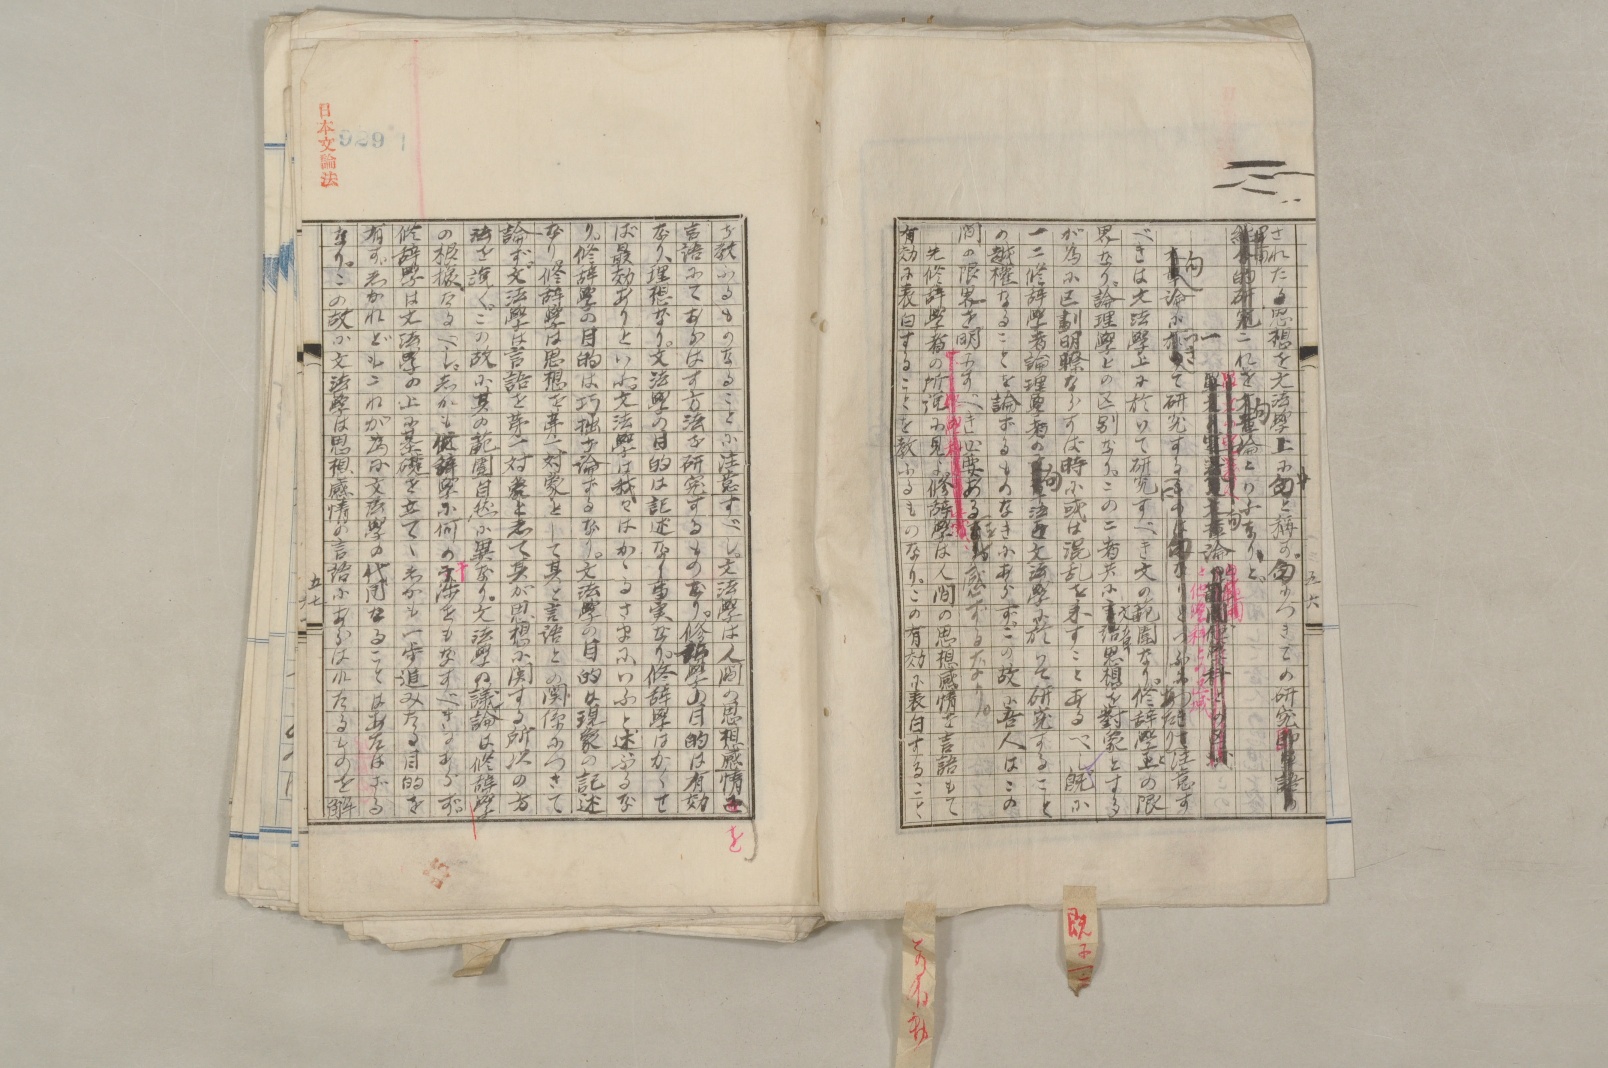 されたる思想を文法學上に句と称す。句につきての研究
的研究これを句論といふなり。
句論に於て研究する
べきは文法學上に於いて研究すべき文の範囲なり。修辞學上の限
界なり。論理學との区別なり。この二者共に言語思想を對象とする
が為に区劃明瞭ならずは時に或は混乱を来すことあるべ、既に
一二修辞學者論理學者の文法學に於いて研究すること
の越權なることを論ずるものなきにあらず。この故に吾人はこの
間の限界を明かすべき必要あるを感ずるなり。
先修辞學者の所説に見よ修辞學は人間の思想感情を言語もて
有効に表白することを教ふるものなり。この有効に表白すること
五六
を教ふるものなることに注意すべし。文法學は人間の思想感情を
言語にてあらはす方法を研究するものなり。修辞學の目的は有効
なり、理想なり。文法學の目的は記述なり事実なり。修辞學はかくせ
ば最効ありといふ。文法學は我々はかゝるさまにいふと述ぶるな
り。修辞學の目的は巧拙を論ずるなり。文法學の目的は現象の記述
なり。修辞學は思想を第一對象として其と言語との関係につきて
論ず。文法學は言語を第一対象として其が思想に関する所以の方
法を説く。この故に其の範囲自然に異なり。文法學の議論は修辞學
の根據たるべし。しかも修辞學に何の干渉をもなすべきにあらず。
修辞學は文法學の上に基礎を立てゝしかも一歩進みたる目的を
有す。しかれどもこれが為に文法學の代用たることはあたはざる
なり。この故に文法學は思想感情の言語にあらはれたるものを解
五七
日本文法論
929
を
既に
この有効